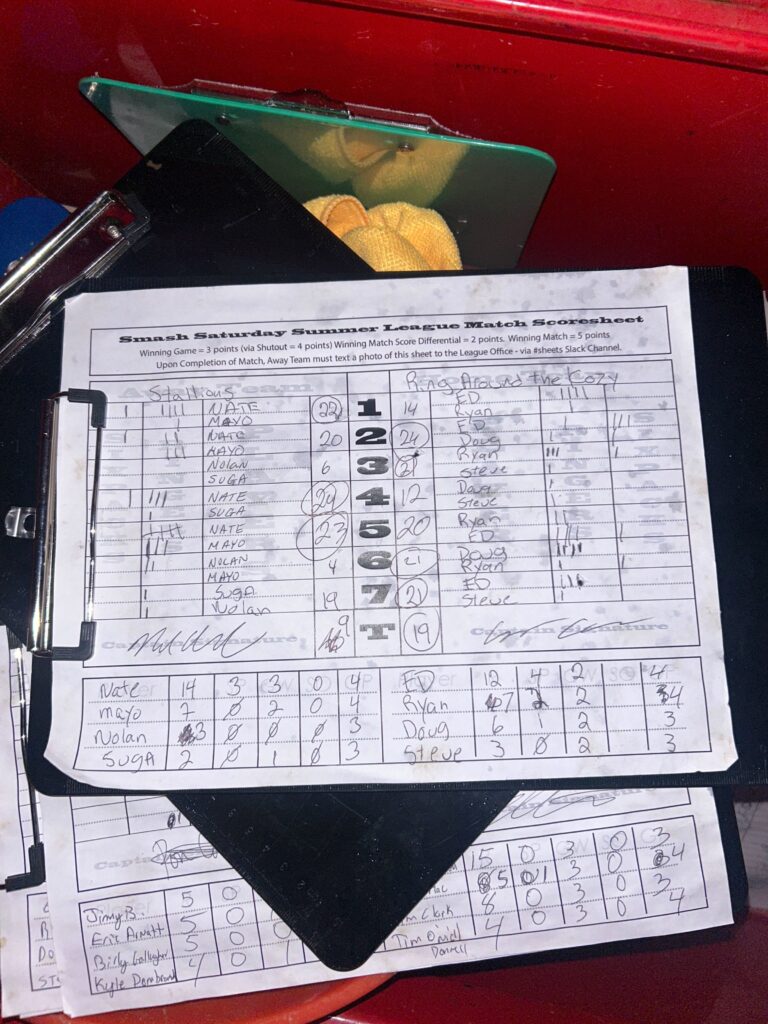 Smash Saturday Summer League Match Scoresheet
Winning Game = 3 points (via Shutout = 4 points) Winning Match Score Differential = 2 points. Winning Match = 5 points
Upon Completion of Match, Away Team must text a photo of this sheet to the League Office - via #sheets Slack Channel.
Stallions Ring Around the Cozy
NATE 22 1 14 ED
MAYO Ryan
NATE 20 2 24 ED
MAYO Doug
NOLAN 6 3 21 Ryan
SUGA Steve
NATE 24 4 12 Doug
SUGA Steve
NATE 23 5 20 Ryan
MAYO ED
NOLAN 4 6 21 Doug
MAYO Ryan
SUGA 19 7 21 ED
Nolan Steve
9 T 19
Captain Signature Captain Signature
Nate 14 3 3 0 4 ED 12 4 2 4
Mayo 7 0 2 0 4 Ryan 7 2 2 4
Nolan 3 0 0 0 3 Doug 6 1 2 3
SUGA 2 0 1 0 3 Steve 3 0 2 3
15 0 3 0 3
Jimmy B. 5 0 5 1 3 0 4
Eric Arnott 5 0 Clark 8 0 3 0 3
Billy Gallagher 5 0 Tim O'neill 4 0 3 0 4
Kyle 4 0 Donnell